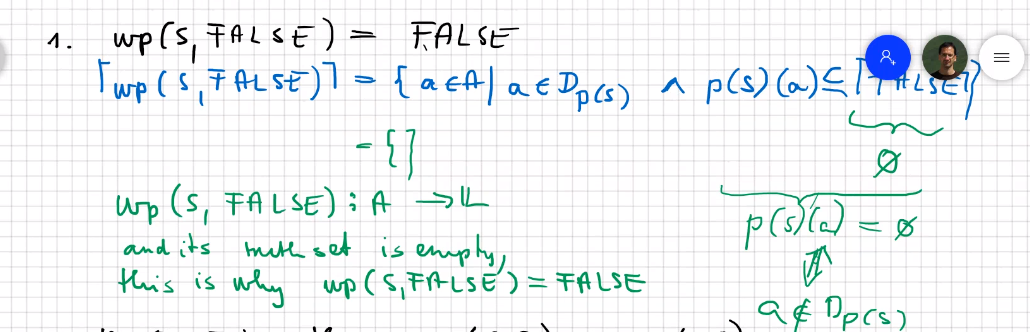 1. wp(S, FALSE) = FALSE
⌈wp(S, FALSE)⌉ = {a∈A | a∈D_p(S) ∧ p(S)(a) ⊆ ⌈FALSE⌉}
= {}
∅
wp(S, FALSE) : A → 𝕃
p(S)(a) = ∅
and its truth set is empty,
this is why wp(S, FALSE) = FALSE
⇕
a ∉ D_p(S)